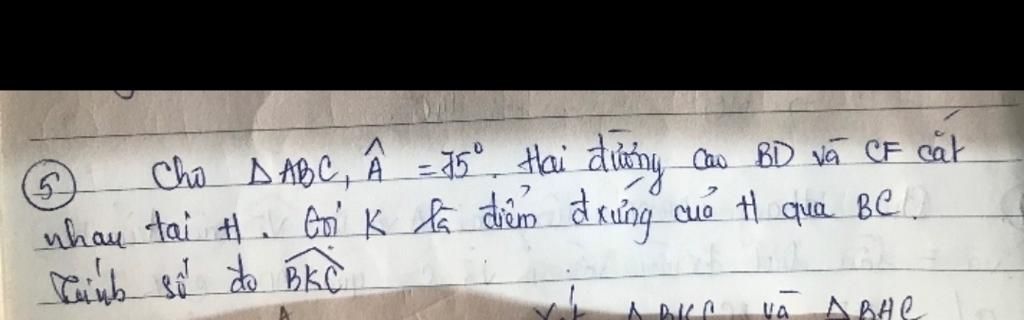 5 Cho ΔABC, Â = 75°. Hai đường cao BD và CF cắt
nhau tại H. Gọi K là điểm đxứng của H qua BC.
Tính số đo BKC
A Xét ΔBKC và ΔBHC